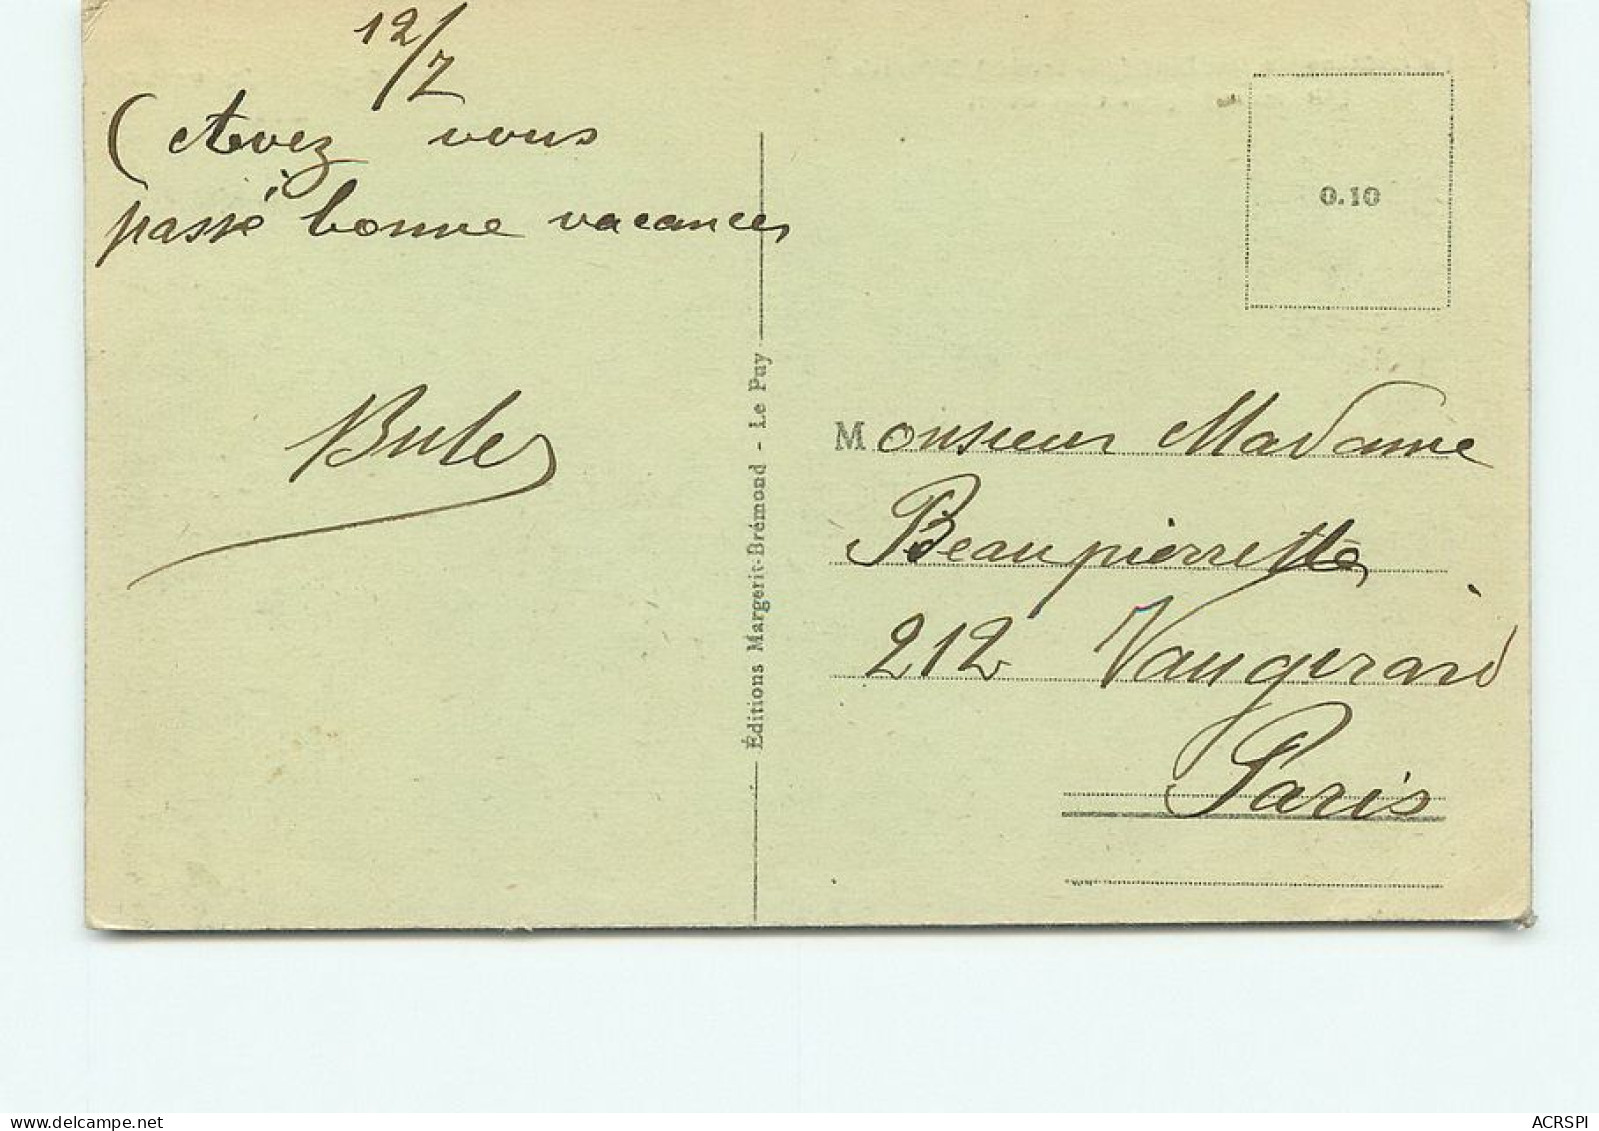 12/7
Avez vous
passé bonne vacances
Éditions Margerit-Brémond - Le Puy
0.10
Monsieur Madame
Beaupierrette
212 Vaugirard
Paris
delcampe.net
ACRSPI